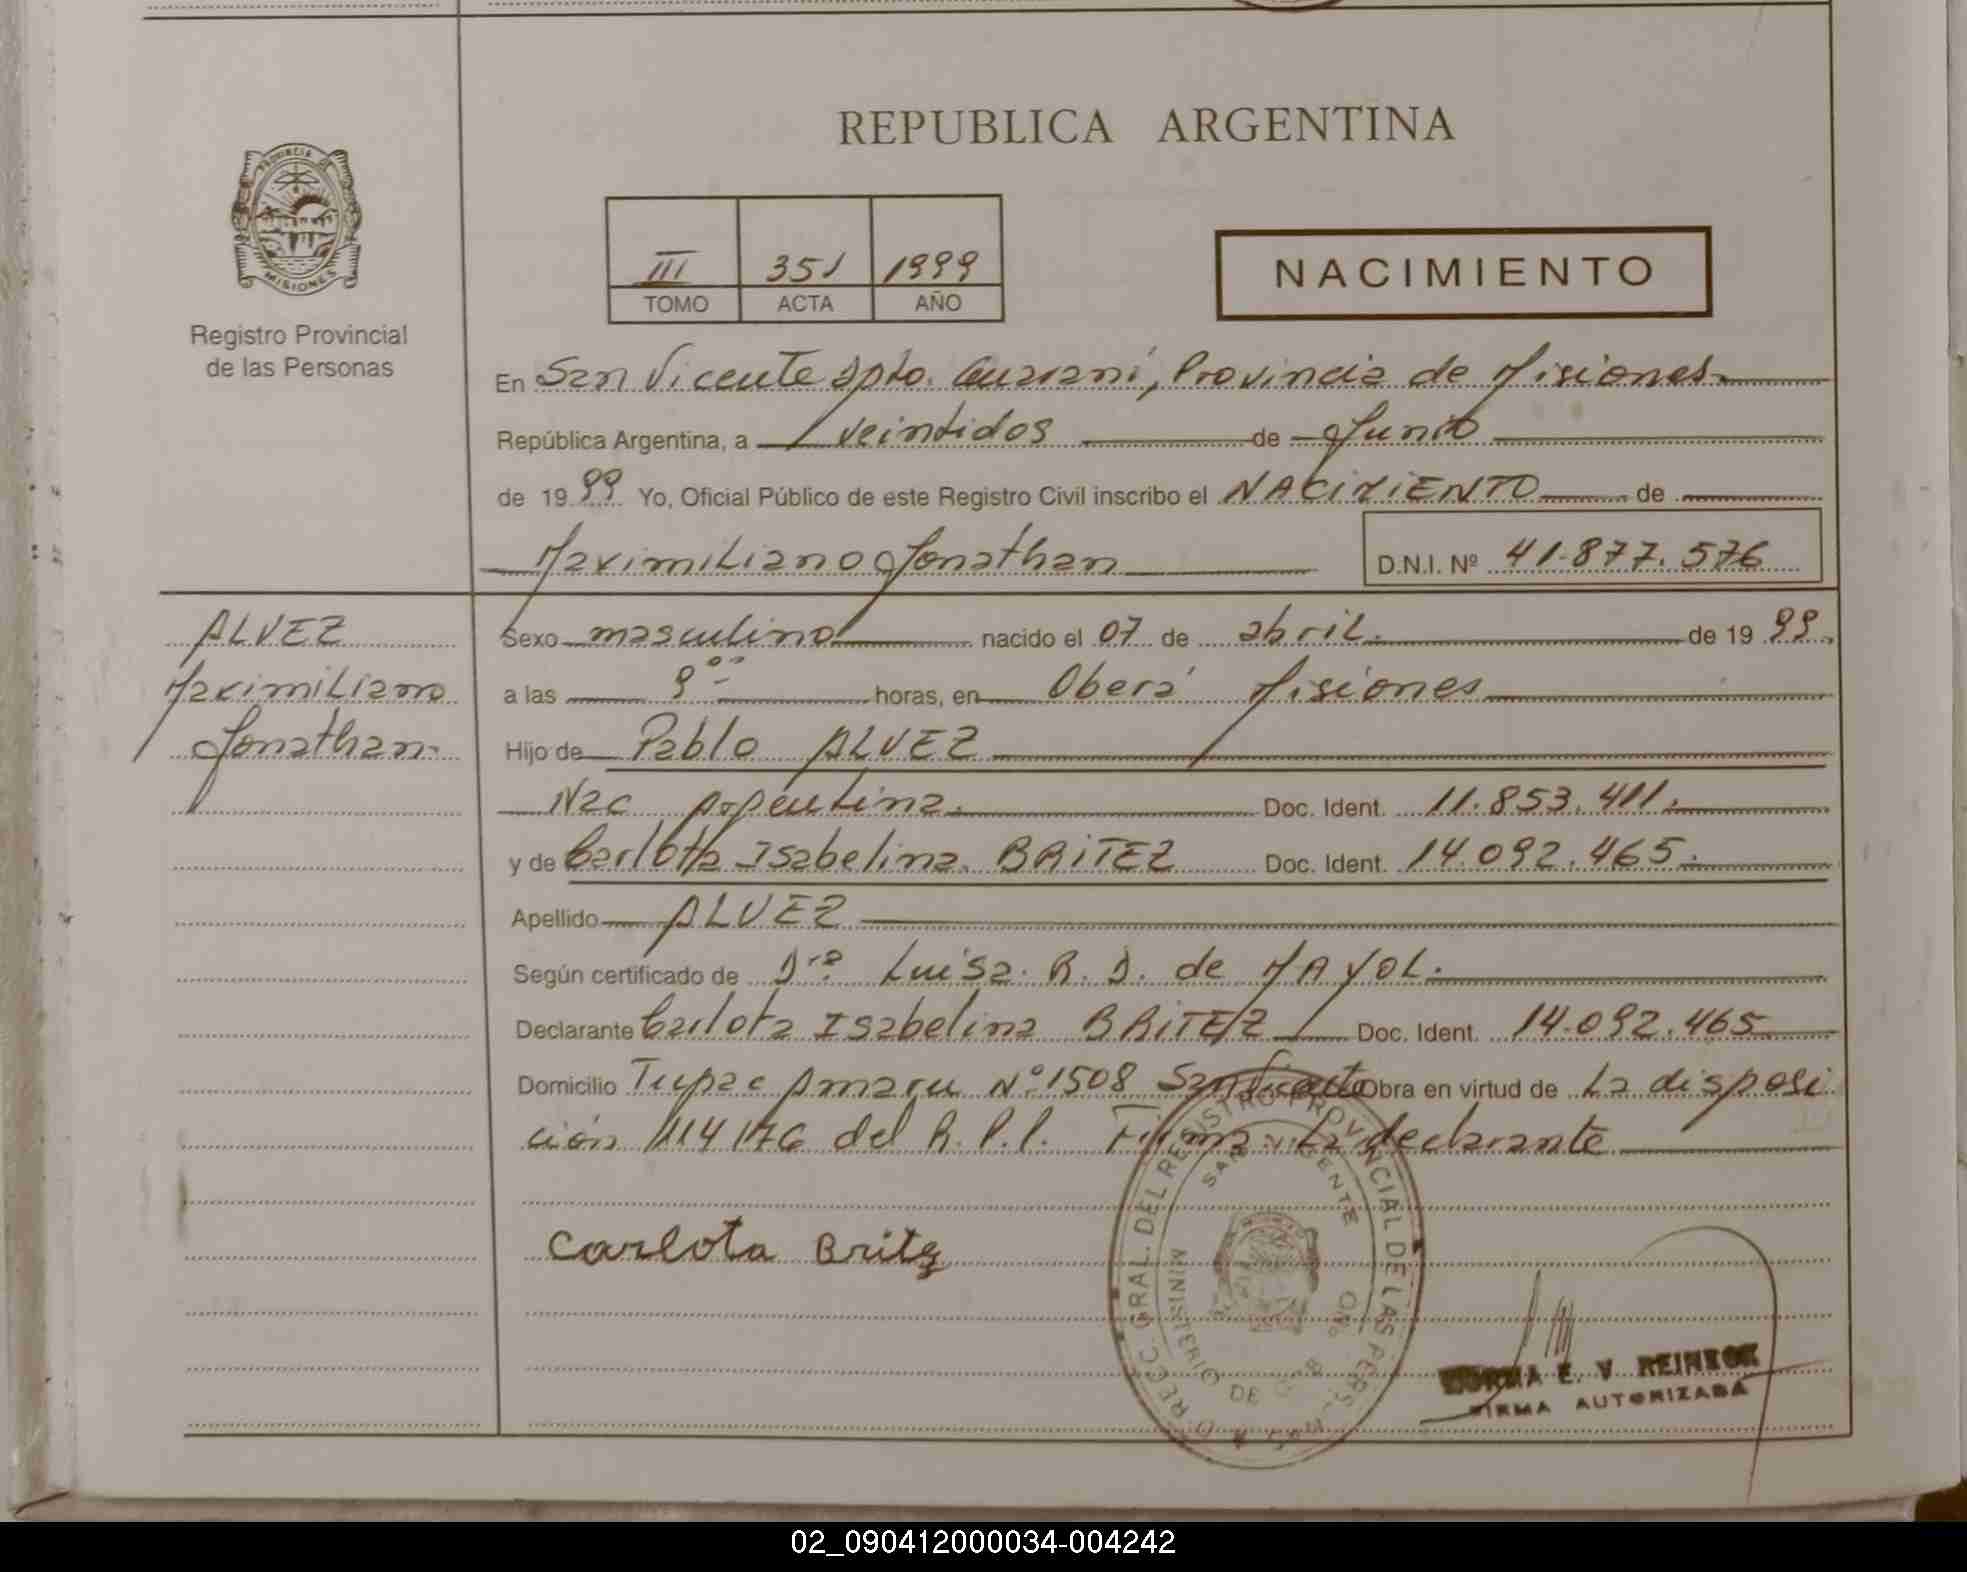 REPUBLICA ARGENTINA
PROVINCIA DE
MISIONES
Registro Provincial
de las Personas
III 351 1999
TOMO ACTA AÑO
NACIMIENTO
En San Vicente Dpto. Guaraní, Provincia de Misiones
República Argentina, a veintidos de Junio
de 1999 Yo, Oficial Público de este Registro Civil inscribo el NACIMIENTO de
Maximiliano Jonathan D.N.I. Nº 41.877.576
ALVEZ
Maximiliano
Jonathan
Sexo masculino nacido el 07 de abril. de 1999
a las 9 horas, en Oberá Misiones
Hijo de Pablo ALVEZ
Nac Argentina. Doc. Ident. 11.853.411.
y de Carlota Isabelina. BRITEZ Doc. Ident. 14.092.465.
Apellido ALVEZ
Según certificado de Dra. Luisa. R. D. de MAYOL.
Declarante Carlota Isabelina BRITEZ Doc. Ident. 14.092.465
Domicilio Tupac Amaru Nº 1508 San Vicente Obra en virtud de La disposi
ción 114/76 del R.P.P. Firma: La declarante
Carlota Britez
DIRECC. GRAL. DEL REGISTRO PROVINCIAL DE LAS PERS.
SAN VICENTE
MINISTERIO DE GOB.
NORMA E. V. REINECK
FIRMA AUTORIZADA
02_090412000034-004242